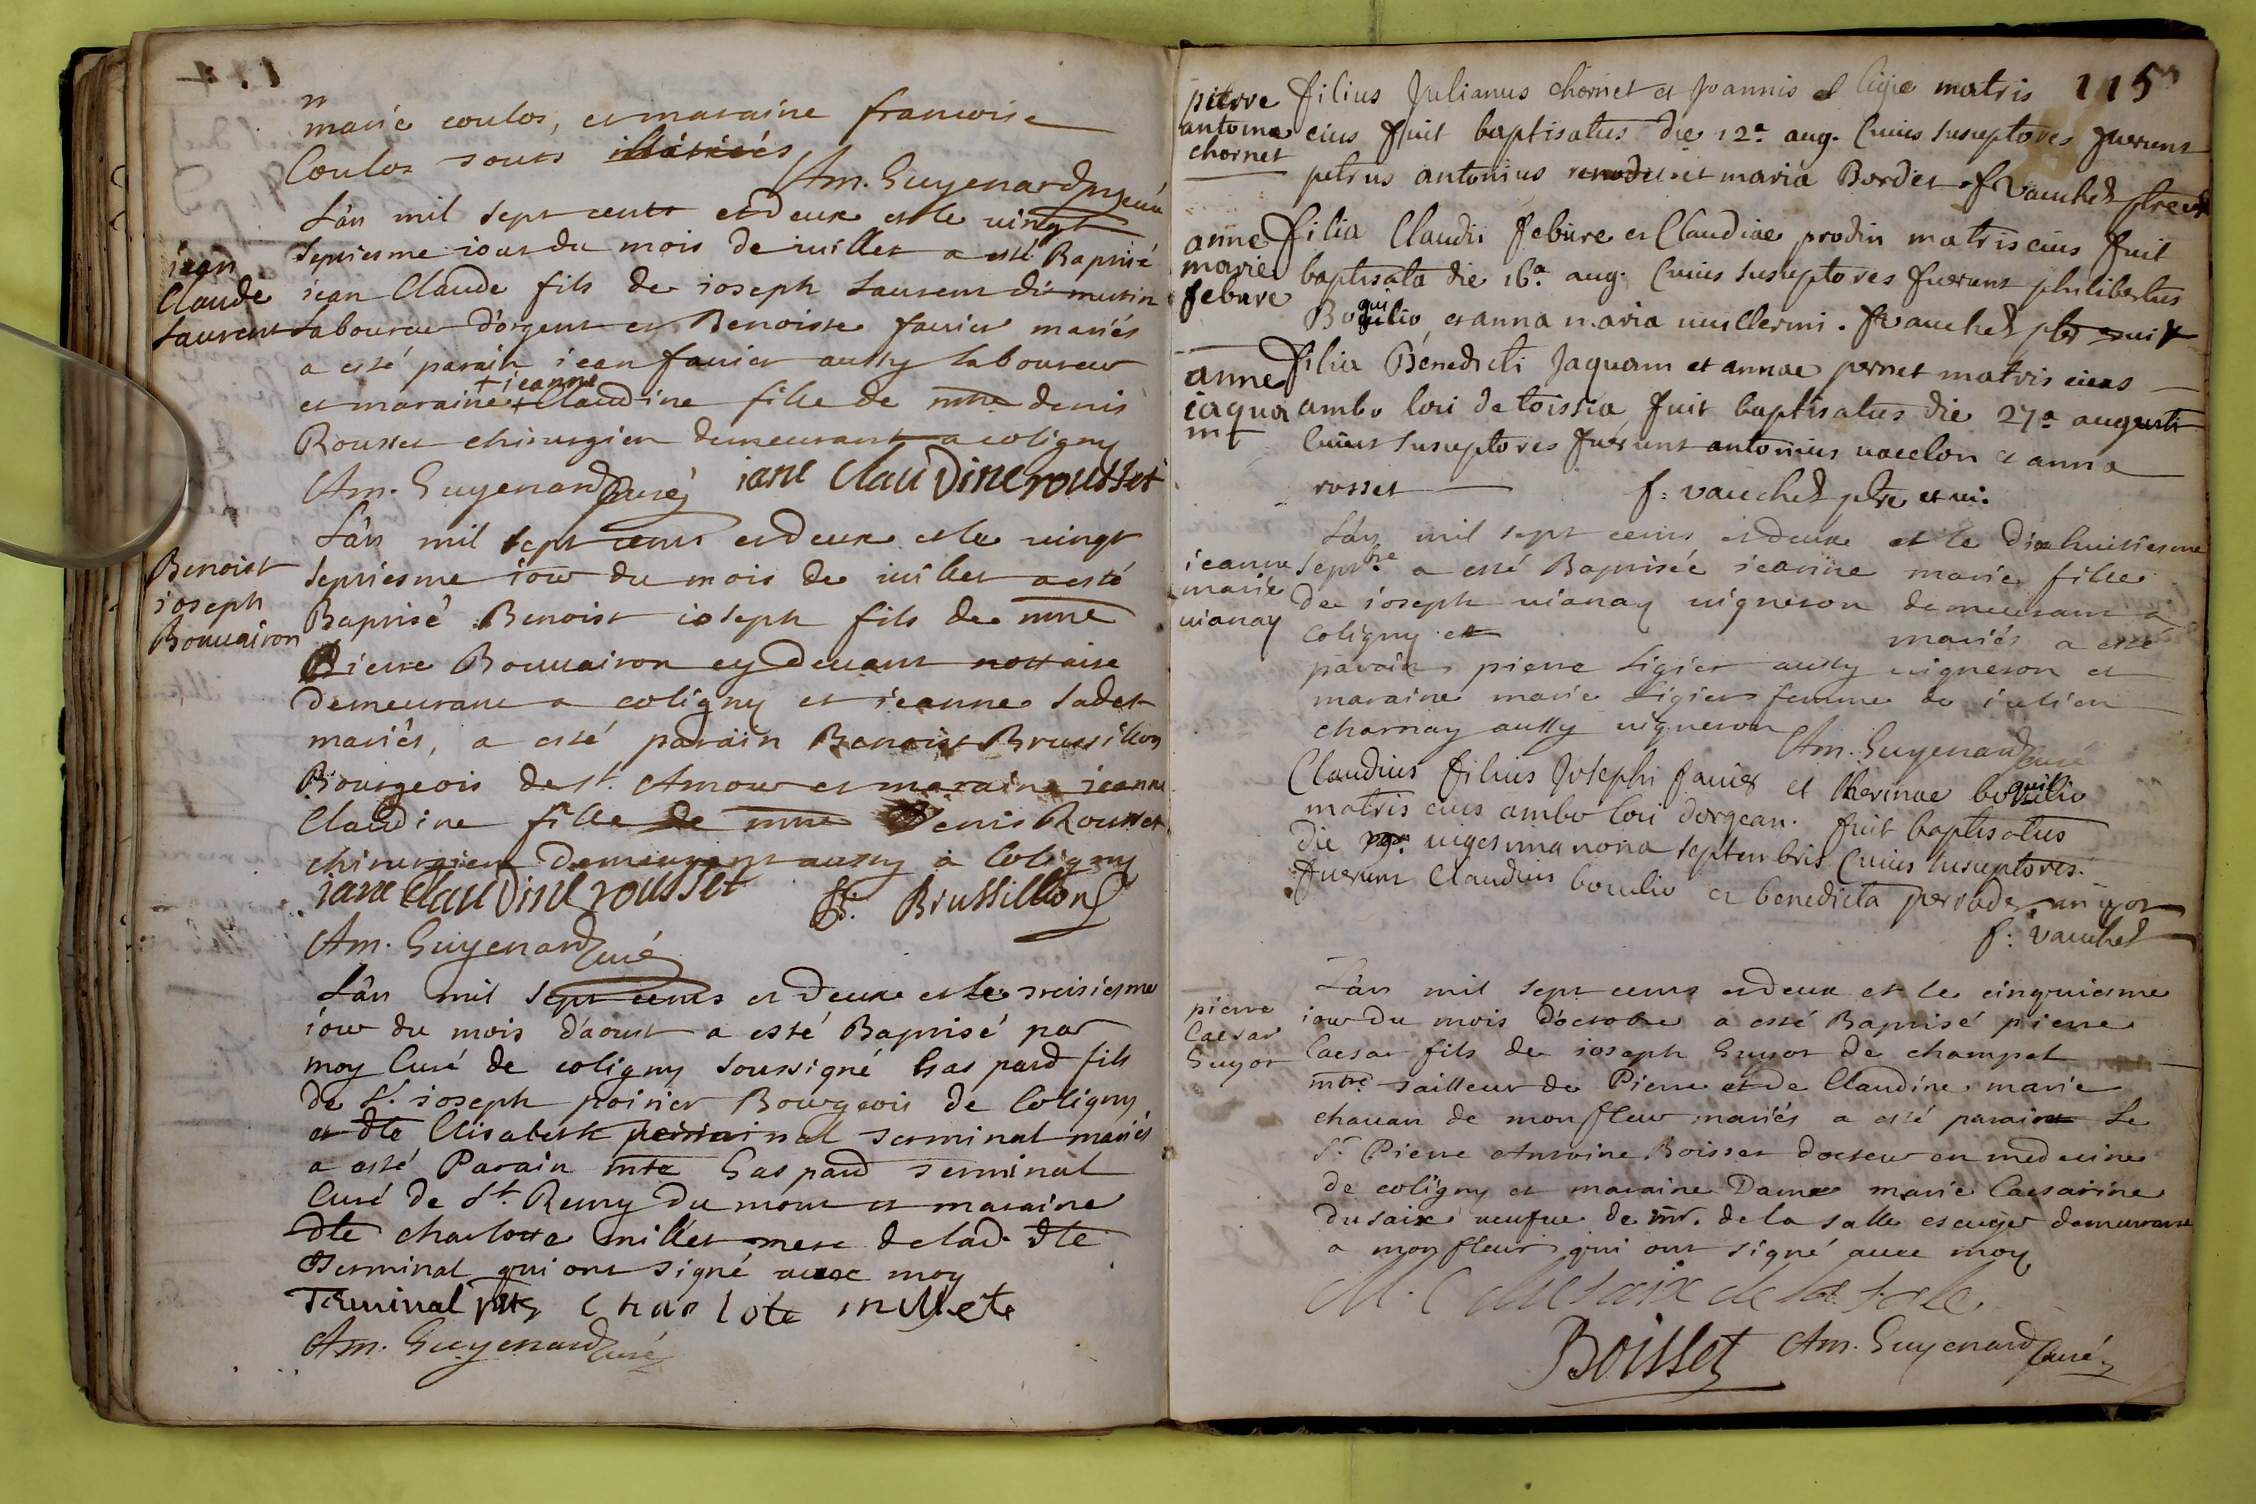 marie coulos, et maraine francoise
Coulos touts illiterés
Am. Guyenard curé
L'an mil sept cents et deux et le vingt
jean
Claude
Laurent
septiesme iour du mois de iuillet a esté Baptisé
iean Claude fils de ioseph Laurent dit mutin
Laboureur d'orgent et Benoiste favier mariés
a esté parain iean favier aussy Laboureur
et maraine + ieanne Claudine fille de mre denis
Rousset chirurgien demeurant a coligny
Am. Guyenard Curé iane Claudine rousset
L'an mil sept cents et deux et le vingt
Benoist
ioseph
Bouvairon
septiesme iour du mois de iuillet a esté
Baptisé Benoist ioseph fils de mre
Pierre Bouvairon cy devant nottaire
demeurant a coligny et ieanne Ladet
mariés, a esté parain Benoist Brussillon
Bourgeois de St. Amour et maraine ieanne
Claudine fille de mre Denis Rousset
chirurgien demeurant aussy a Coligny
iane Claudine rousset B. Brussillon
Am. Guyenard curé
L'an mil sept cents et deux et le troisiesme
iour du mois d'aoust a esté Baptisé par
moy Curé de coligny soussigné Gaspard fils
de Sr. ioseph poirier Bourgeois de Coligny
et dlle Elisabeth Terminal mariés
a esté Parain mre Gaspard Terminal
Curé de St. Remy du mont et maraine
dlle charlotte millet mere de lad. dlle
Terminal qui ont signé avec moy
Terminal ptre Charlote millete
Am. Guyenard curé
115
pierre
antoine
chornet
filius Julianus chornet et Joannis Ligie matris
eius fuit baptisatus die 12a aug. Cuius susceptores fuerunt
petrus antonius et maria Bordet f. vauchez ptre
anne
marie
febure
filia Claudii febure et Claudiae prodin matris eius fuit
baptisata die 16a aug. Cuius susceptores fuerunt philibertus
Boquilio et anna maria vuillermi. f. vauchez ptre
anne
iaqua
mt
filia Benedicti Jaquam et annae pernet matris eius
ambo loci de toissia fuit baptisatus die 27a augusti
Cuius susceptores fuerunt antonius vauclon et anna
rosset f: vauchez ptre et vi.
L'an mil sept cents et deux et le dixhuitiesme
ieanne
marie
vianay
septbre a esté Baptisée ieanne marie fille
de ioseph vianay vigneron demeurant a
coligny et mariés a esté
parain pierre Ligier aussy vigneron et
maraine marie Ligier femme de iulien
charnay aussy vigneron
Am. Guyenard curé
Claudius filius Josephi favier et therinae boquilio
matris eius ambo loci dorgean. fuit baptisatus
die vigesima nona septembris Cuius susceptores
fuerunt Claudius boulio et benedicta
f: vauchez
L'an mil sept cents et deux et le cinquiesme
pierre
Caesar
Guyot
iour du mois d'octobre a esté Baptisé pierre
Caesar fils de ioseph Guyot de champel
mtre tailleur de Pierre et de Claudine marie
chavan de monfleur mariés a esté parain Le
Sr. Pierre Antoine Boisset docteur en medecine
de coligny et maraine Dame marie Caesarine
dusaix veufue de mr. de la salle escuyer demeurant
a monfleur qui ont signé avec moy
M. C dusaix de la sale
Boisset Am. Guyenard Curé